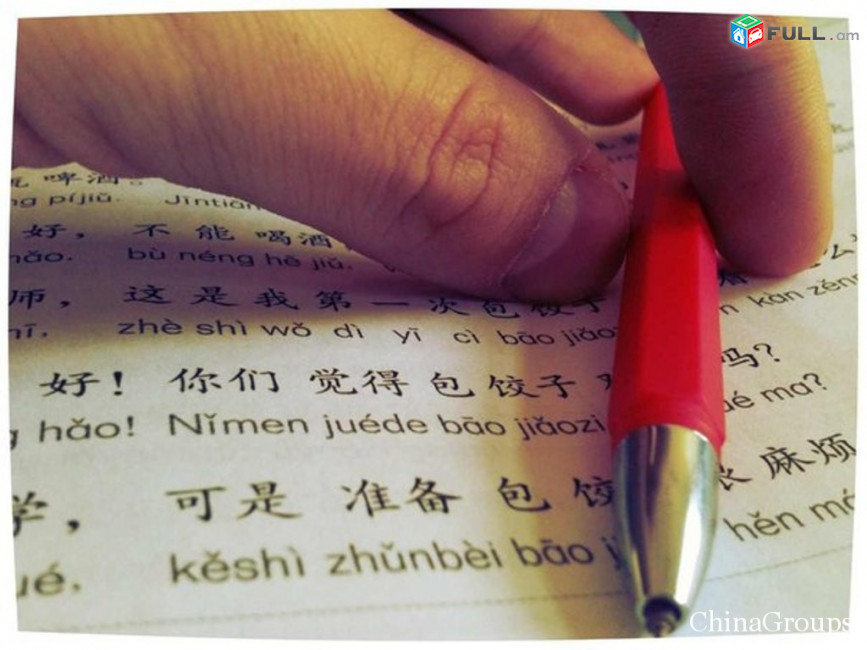 FULL.am
啤酒。
píjiǔ. Jīntiān
好，不能喝酒
hǎo. bù néng hē jiǔ.
师，这是我第一次包饺子
zhè shì wǒ dì yī cì bāo jiǎozi kàn zěn
好！你们觉得包饺子 吗？
hǎo! Nǐmen juéde bāo jiǎozi ma?
学，可是准备包饺 很麻烦
kěshì zhǔnbèi bāo hěn má
ChinaGroups